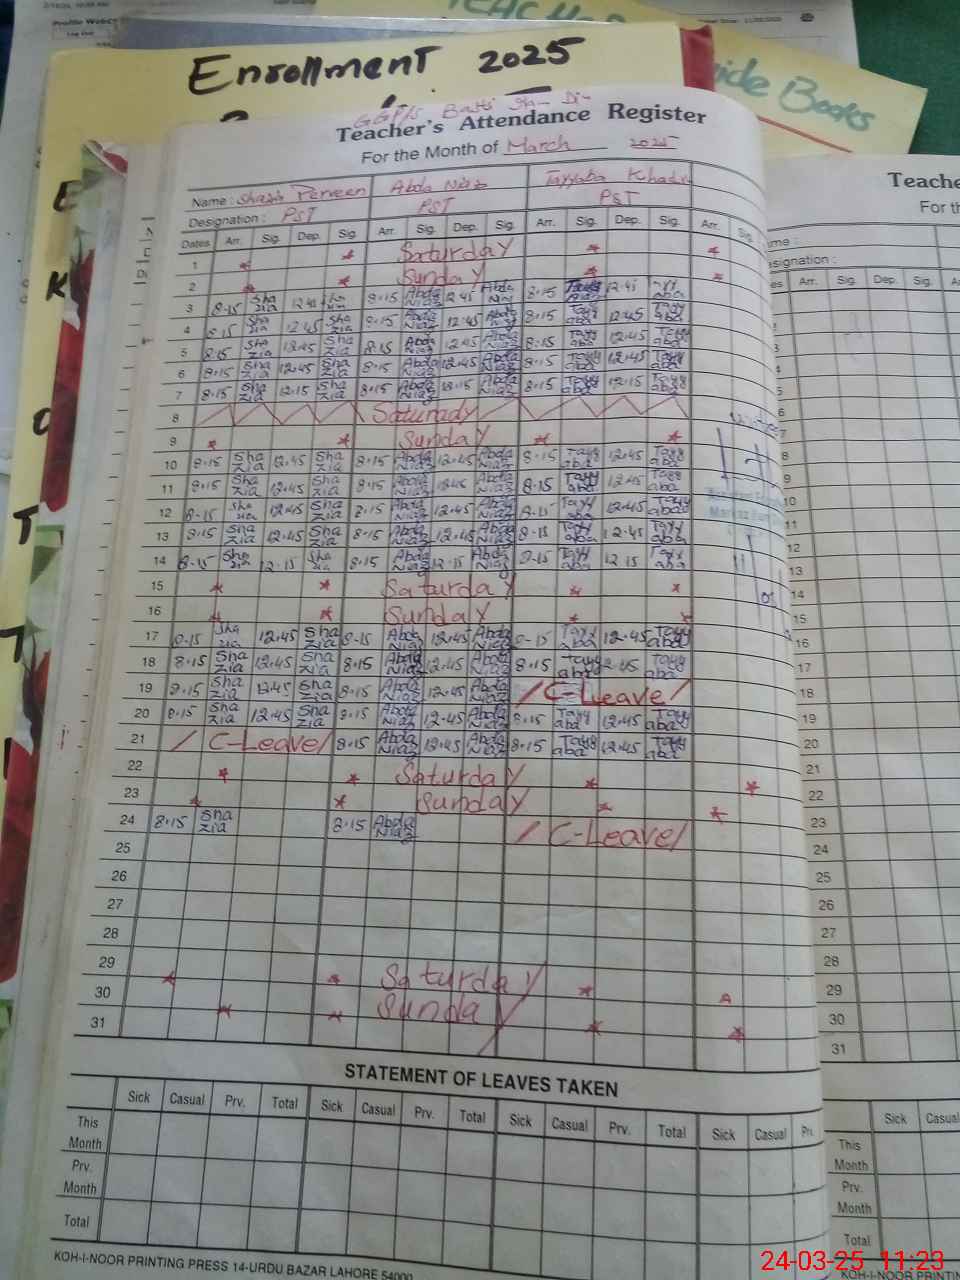 Enrollment 2025
ide Books
Teacher's Attendance Register
For the Month of March 2025
Name : Shazia Perveen Abda Niaz Tayyaba Khadi
Designation : PST PST PST
Dates Arr. Sig. Dep. Sig. Arr. Sig. Dep. Sig. Arr. Sig. Dep. Sig. Arr. Sig.
1 * * Saturday * *
2 * * Sunday * *
3 8-15 Sha zia 12.45 Sha zia 8-15 Abda Niaz 12.45 Abda Niaz 8-15 Tayy aba 12.45 Tayy aba
4 8-15 Sha zia 12.45 Sha zia 8-15 Abda Niaz 12.45 Abda Niaz 8-15 Tayy aba 12.45 Tayy aba
5 8-15 Sha zia 12.45 Sha zia 8-15 Abda Niaz 12.45 Abda Niaz 8-15 Tayy aba 12.45 Tayy aba
6 8-15 Sha zia 12.45 Sha zia 8-15 Abda Niaz 12.45 Abda Niaz 8-15 Tayy aba 12.45 Tayy aba
7 8-15 Sha zia 12.15 Sha zia 8-15 Abda Niaz 12.15 Abda Niaz 8-15 Tayy aba 12.15 Tayy aba
8 Saturady
9 * * Sunday * *
10 8-15 Sha zia 12.45 Sha zia 8-15 Abda Niaz 12.45 Abda Niaz 8-15 Tayy aba 12.45 Tayy aba
11 8-15 Sha zia 12.45 Sha zia 8-15 Abda Niaz 12.45 Abda Niaz 8-15 Tayy aba 12.45 Tayy aba
12 8-15 Sha zia 12.45 Sha zia 8-15 Abda Niaz 12.45 Abda Niaz 8-15 Tayy aba 12.45 Tayy aba
13 8-15 Sha zia 12.45 Sha zia 8-15 Abda Niaz 12.45 Abda Niaz 8-15 Tayy aba 12.45 Tayy aba
14 8-15 Sha zia 12.15 Sha zia 8-15 Abda Niaz 12.15 Abda Niaz 8-15 Tayy aba 12.15 Tayy aba
15 * * Saturday * *
16 * * Sunday * *
17 8-15 Sha zia 12.45 Sha zia 8-15 Abda Niaz 12.45 Abda Niaz 8-15 Tayy aba 12.45 Tayy aba
18 8-15 Sha zia 12.45 Sha zia 8-15 Abda Niaz 12.45 Abda Niaz 8-15 Tayy aba 12.45 Tayy aba
19 8-15 Sha zia 12.45 Sha zia 8-15 Abda Niaz 12.45 Abda Niaz / C-Leave /
20 8-15 Sha zia 12.45 Sha zia 8-15 Abda Niaz 12.45 Abda Niaz 8-15 Tayy aba 12.45 Tayy aba
21 / C-Leave / 8-15 Abda Niaz 12.45 Abda Niaz 8-15 Tayy aba 12.45 Tayy aba
22 * * Saturday * *
23 * * Sunday * *
24 8-15 Sha zia 8-15 Abda Niaz / C-Leave /
25
26
27
28
29 * * Saturday *
30 * * Sunday * *
31
STATEMENT OF LEAVES TAKEN
Sick Casual Prv. Total Sick Casual Prv. Total Sick Casual Prv. Total Sick Casual
This Month
Prv. Month
Total
KOH-I-NOOR PRINTING PRESS 14-URDU BAZAR LAHORE 54000
Arr. Sig. Dep. Sig.
6
7
8
9
10
11
12
13
14
15
16
17
18
19
20
21
22
23
24
25
26
27
28
29
30
31
Sick Casual
This Month
Prv. Month
Total
KOH-I-NOOR
24-03-25 11:23